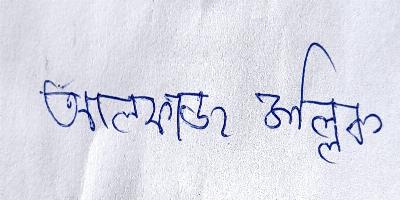 আলফাজ মল্লিক